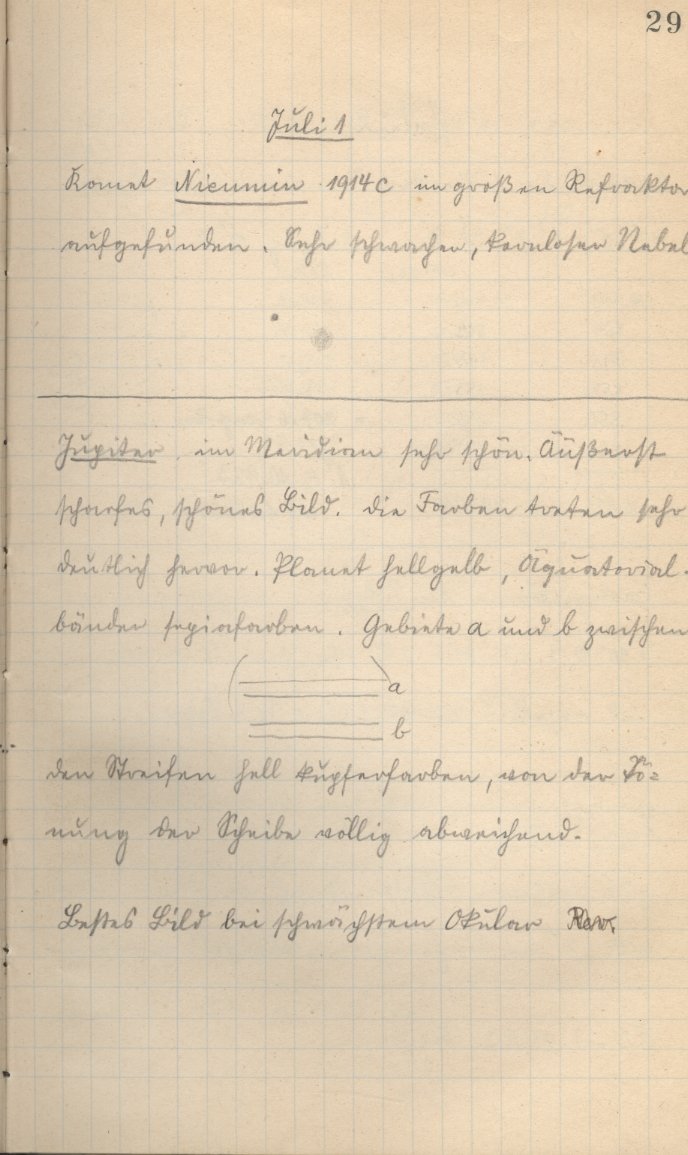 29
Juli 1
Komet Nieumin 1914c im großen Refraktor
aufgefunden. Sehr schwacher, kernloser Nebel
Jupiter im Meridian sehr schön. Äußerst
scharfes, schönes Bild. die Farben treten sehr
deutlich hervor. Planet hellgelb, Äquatorial-
bänder sepiafarben. Gebiete a und b zwischen
a
b
den Streifen hell kupferfarben, von der Tö=
nung der Scheibe völlig abweichend.
Bestes Bild bei schwächstem Okular